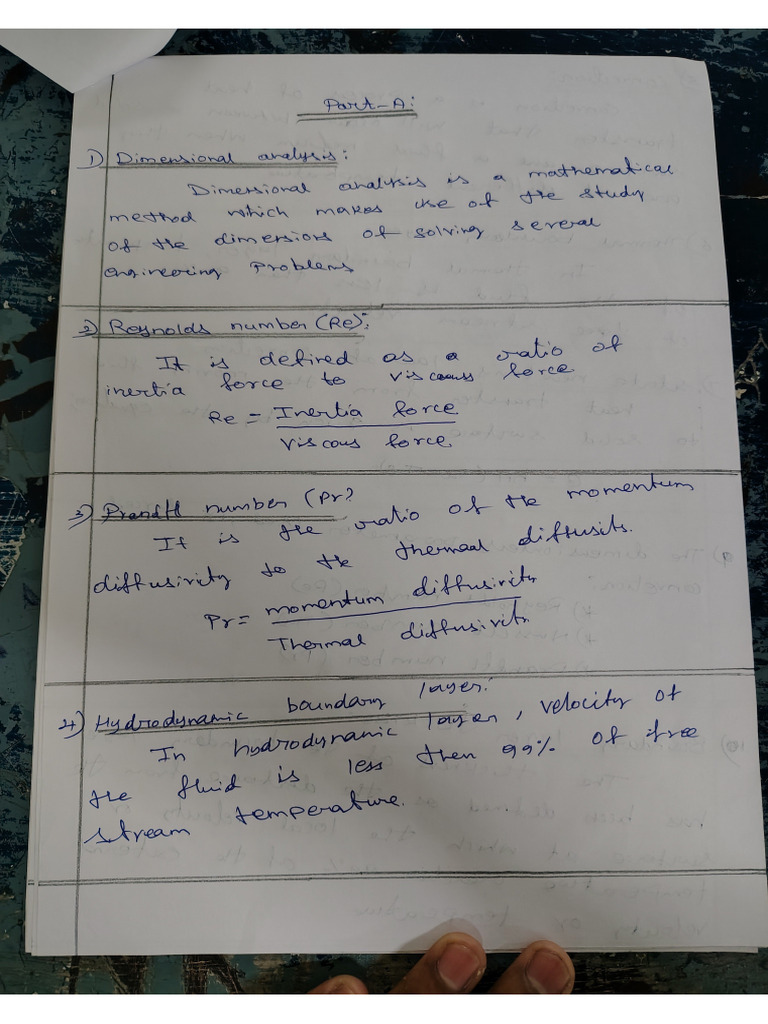 Part-A:
1) Dimensional analysis:
Dimensional analysis is a mathematical
method which makes use of the study
of the dimensions of solving several
engineering problems
2) Reynolds number (Re):
It is defined as a ratio of
inertia force to viscouss force
Re = Inertia force
Viscous force
3) Prandtl number (Pr)
It is the ratio of the momentum
diffusivity to the thermal diffusity.
Pr = momentum diffusivity
Thermal diffusivity
4) Hydrodynamic boundary layer:
In hydrodynamic layer, velocity of
the fluid is less then 99% of free
stream temperature.